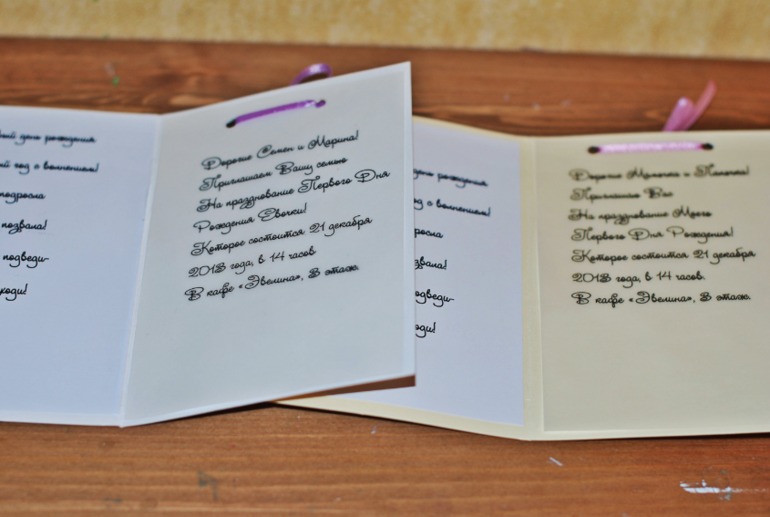 день рождения
год с волнением!
подросла
позвала!
подведи-
ходи!
Дорогие Семен и Марина!
Приглашаем Вашу семью
На празднование Первого Дня
Рождения Евочки!
Которое состоится 21 декабря
2013 года, в 14 часов.
В кафе «Эвелина», 3 этаж.
день рождения
с волнением!
Дорогие Мамочка и Папочка!
Приглашаю Вас
На празднование Моего
Первого Дня Рождения!
Которое состоится 21 декабря
2013 года, в 14 часов.
В кафе «Эвелина», 3 этаж.